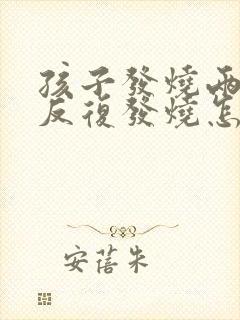 孩子發燒兩
反復發燒怎
安蓓朱